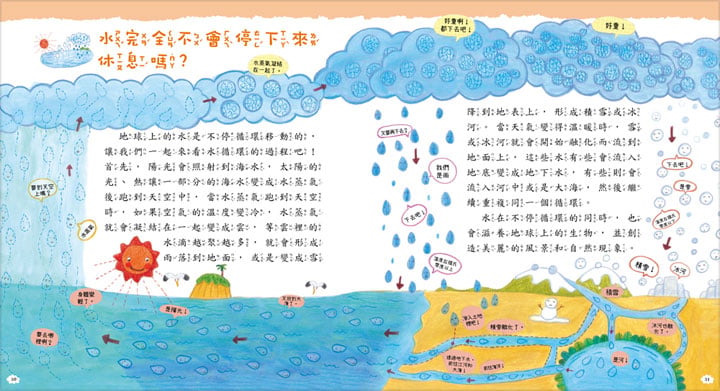 水完全不會停下來
休息嗎？
水蒸氣凝結
在一起了。
好重啊！
都下去吧！
好重！
地球上的水是不停循環移動的，
讓我們一起來看水循環的過程吧！
首先，陽光會照射到海水，太陽的
光、熱讓一部分的海水變成水蒸氣
後跑到天空中，當水蒸氣跑到天空
時，如果空氣的溫度變冷，水蒸氣
就會凝結在一起變成雲，等雲裡的
水滴越聚越多，就會形成
雨落到地面，或是變成雪
降到地表上，形成積雪或冰
河。當天氣變得溫暖時，雪
或冰河就會開始融化而流到
地面上，這些水有些會流入
地底變成地下水，有些則會
流入河中或是大海，然後繼
續重複同一個循環。
水在不停循環的同時，也
會滋養地球上的生物，並創
造美麗的風景和自然現象。
要到天空
上嗎？
水蒸氣
又要再下去？
我們
是雨
下去吧！
溫度在攝氏
零度以上
下去吧！
是雪
溫度在攝氏
零度以下
積雪！
冰河
身體變
輕了。
是陽光！
又回到大
海了！
要去哪
裡啊？
滲入土地
裡吧！
積雪融化了。
積雪
冰河也融
化了。
是河！
透過地下水，
前往江河和
大海！
前往海洋！
30
31